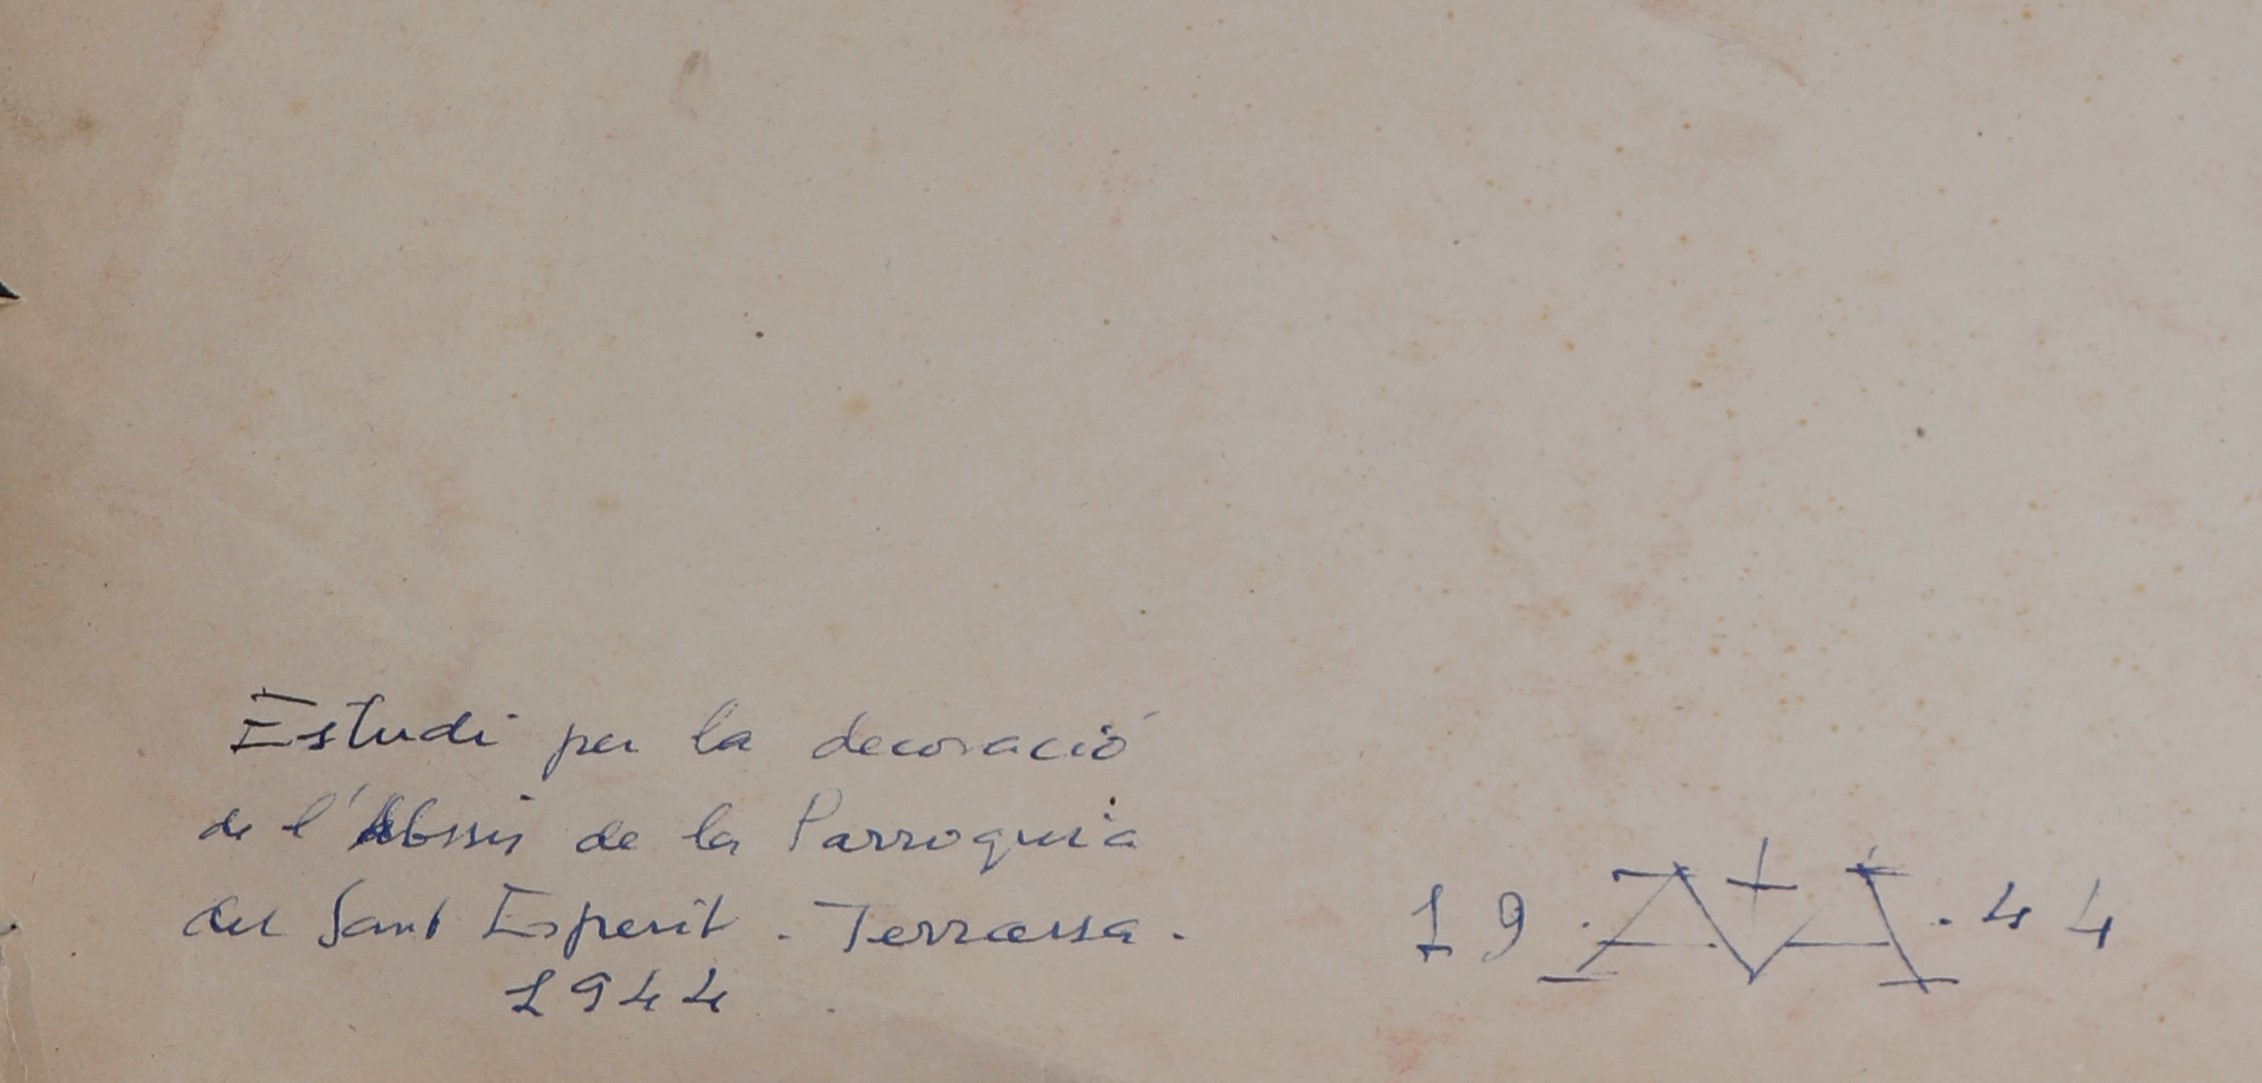 Estudi per la decoració
de l'Absis de la Parroquia
del Sant Esperit. Terrassa.
1944
19. .44